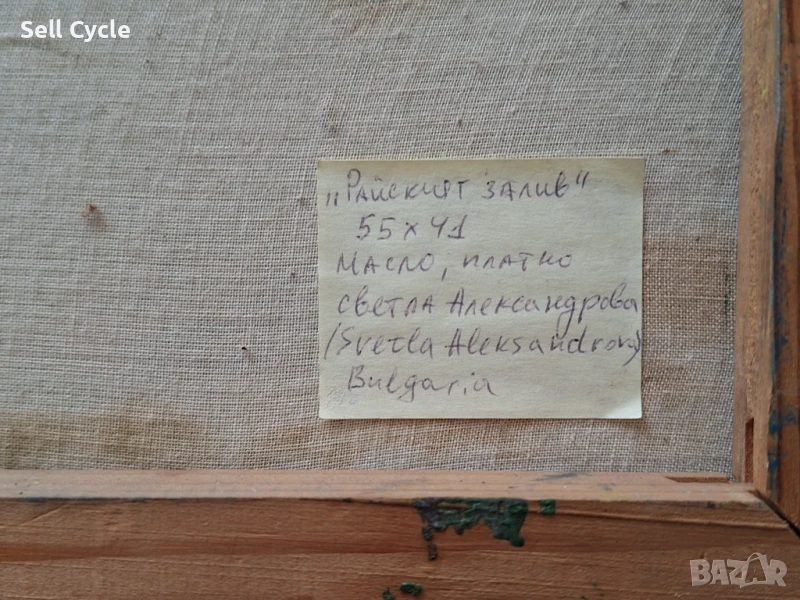 Sell Cycle
„Райският залив“
55x41
Масло, платно
Светла Александрова
(Svetla Aleksandrova)
Bulgaria
BAZAR